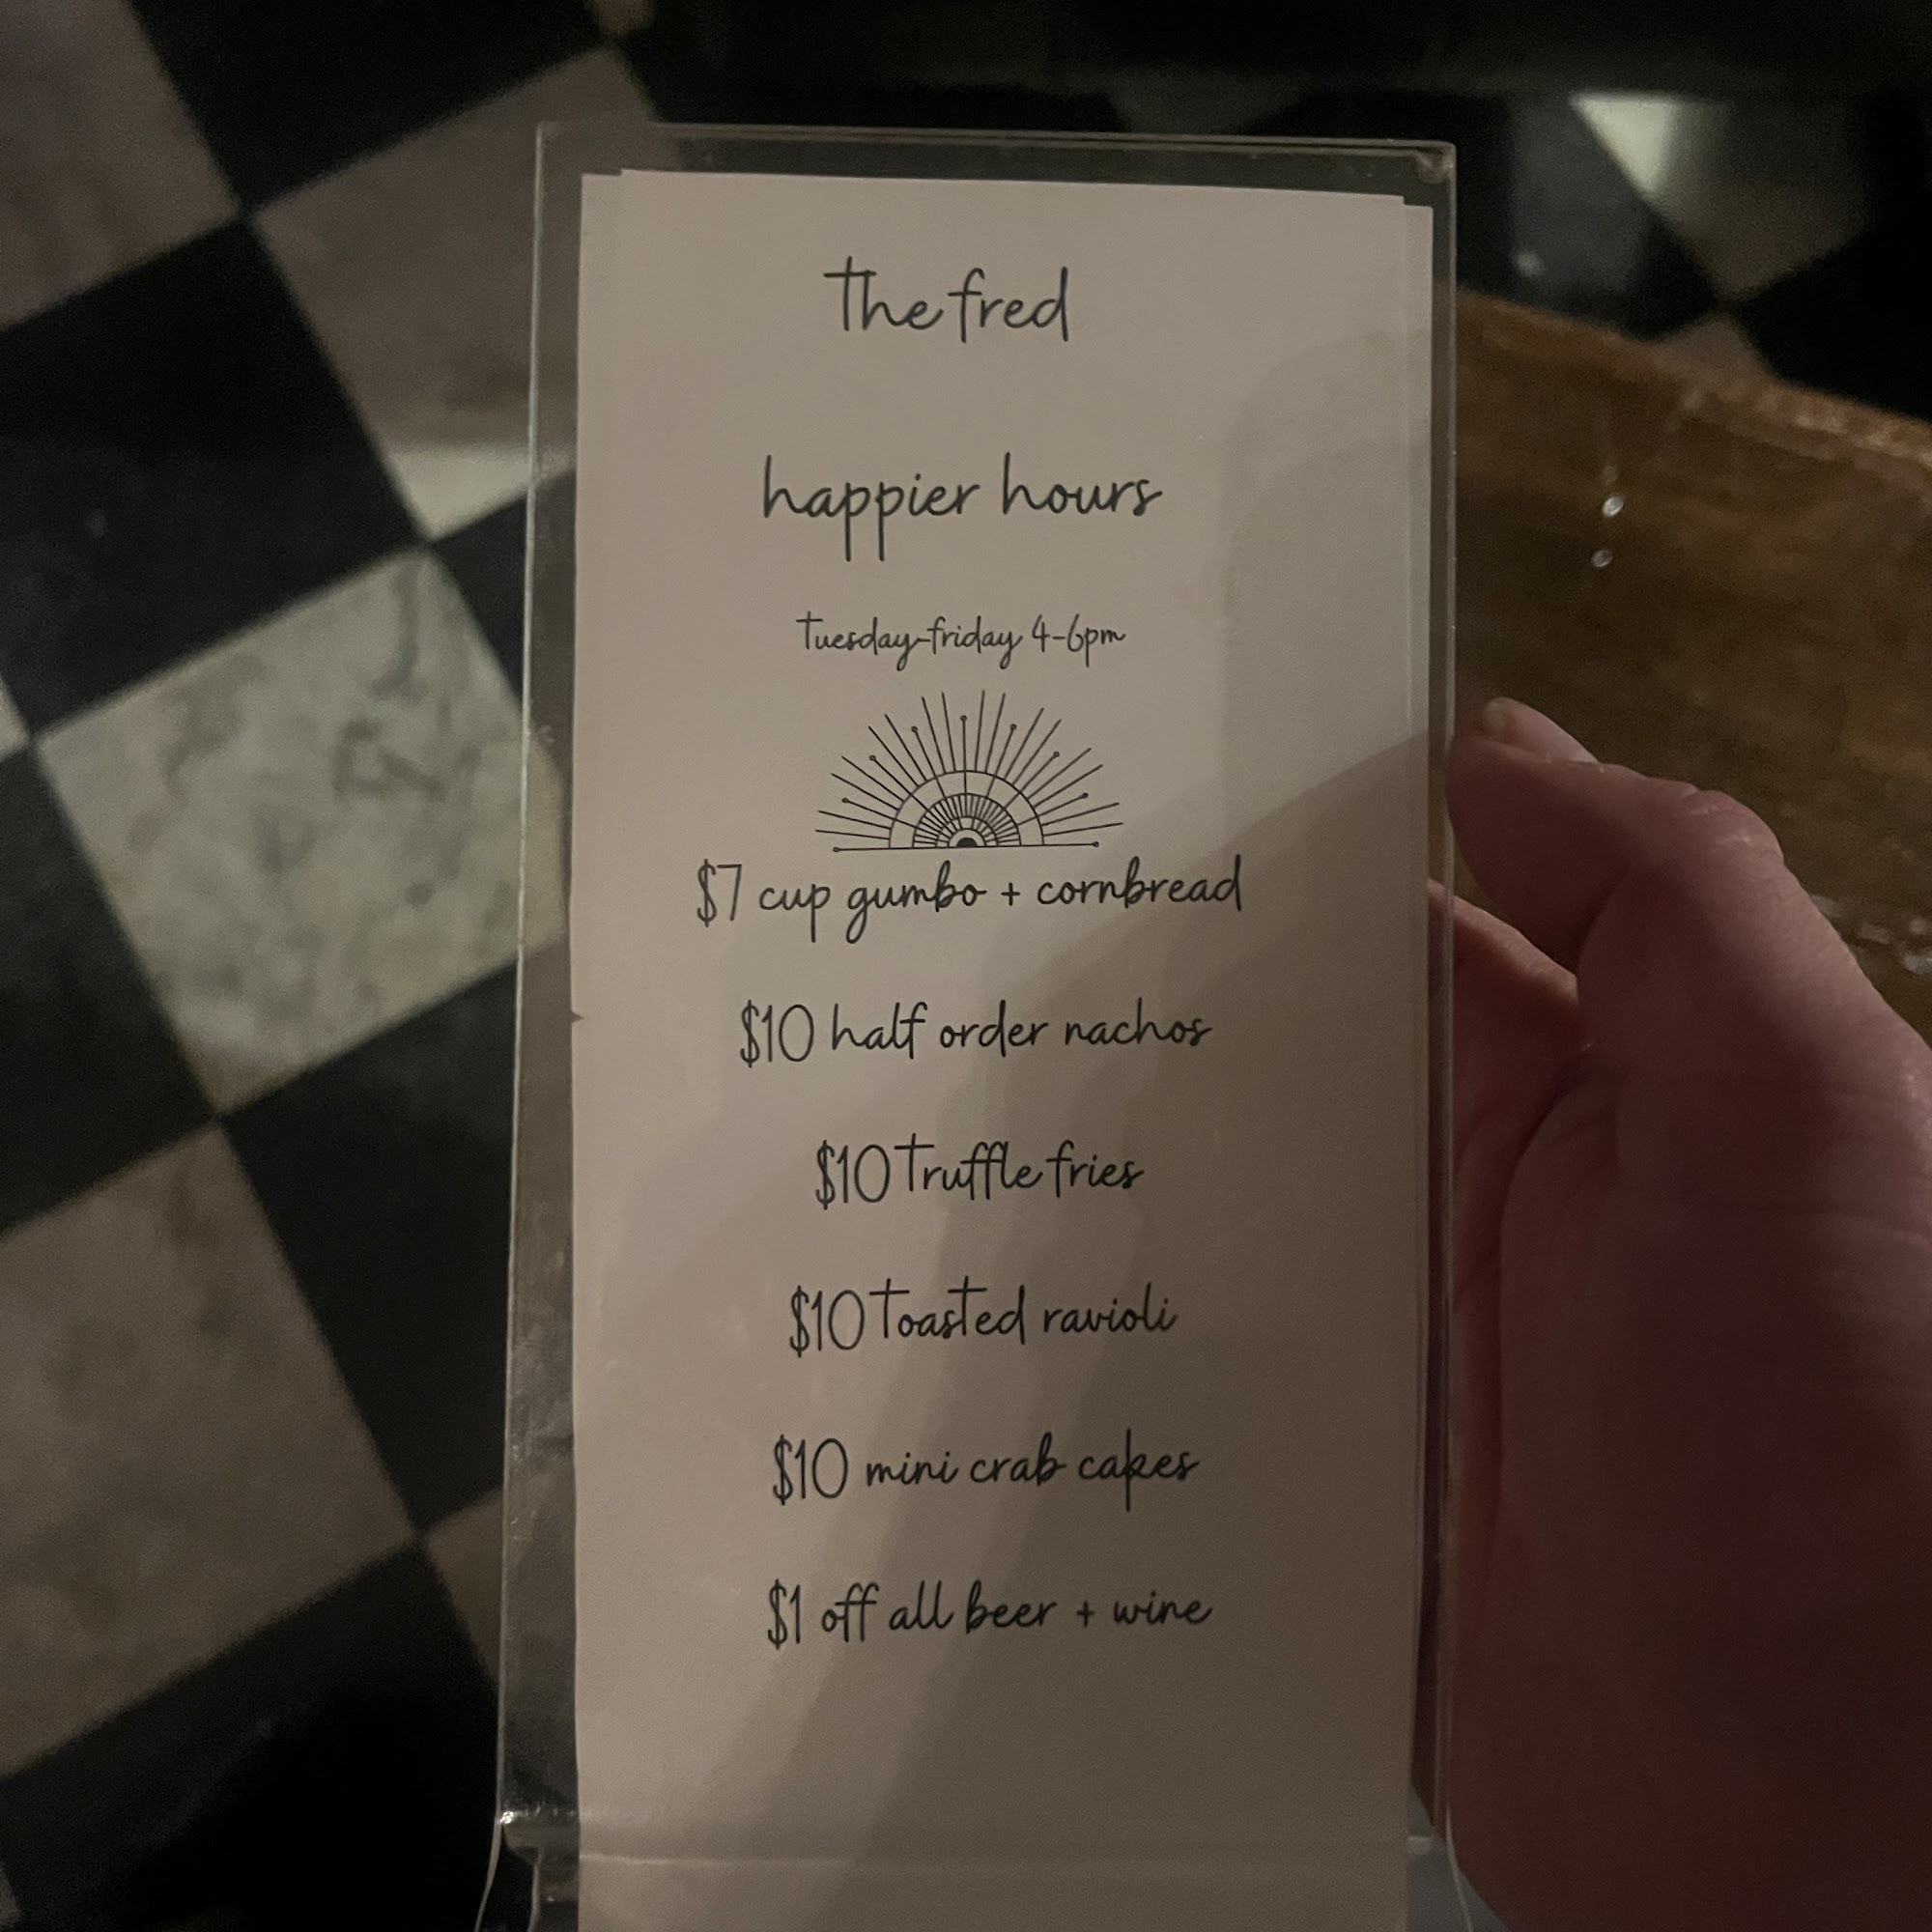 the fred
happier hours
tuesday-friday 4-6pm
$7 cup gumbo + cornbread
$10 half order nachos
$10 truffle fries
$10 toasted ravioli
$10 mini crab cakes
$1 off all beer + wine